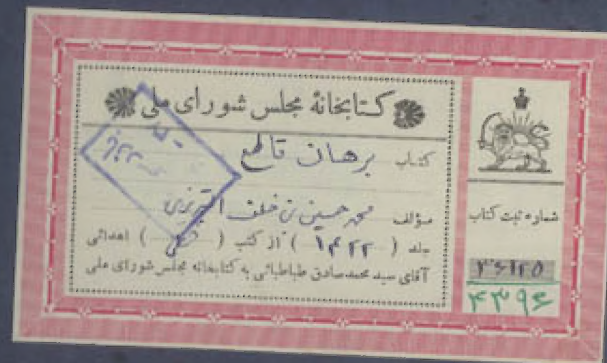 کتابخانهٔ مجلس شورای ملی
کتاب برهان قاطع
مؤلف محمد حسین بن خلف التبریزی
جلد (۱۴۲۲) از کتب (خطی) اهدائی
آقای سید محمدصادق طباطبائی به کتابخانه مجلس شورای ملی
شماره ثبت کتاب
۳۶۱۲۵
۴۳۹۶